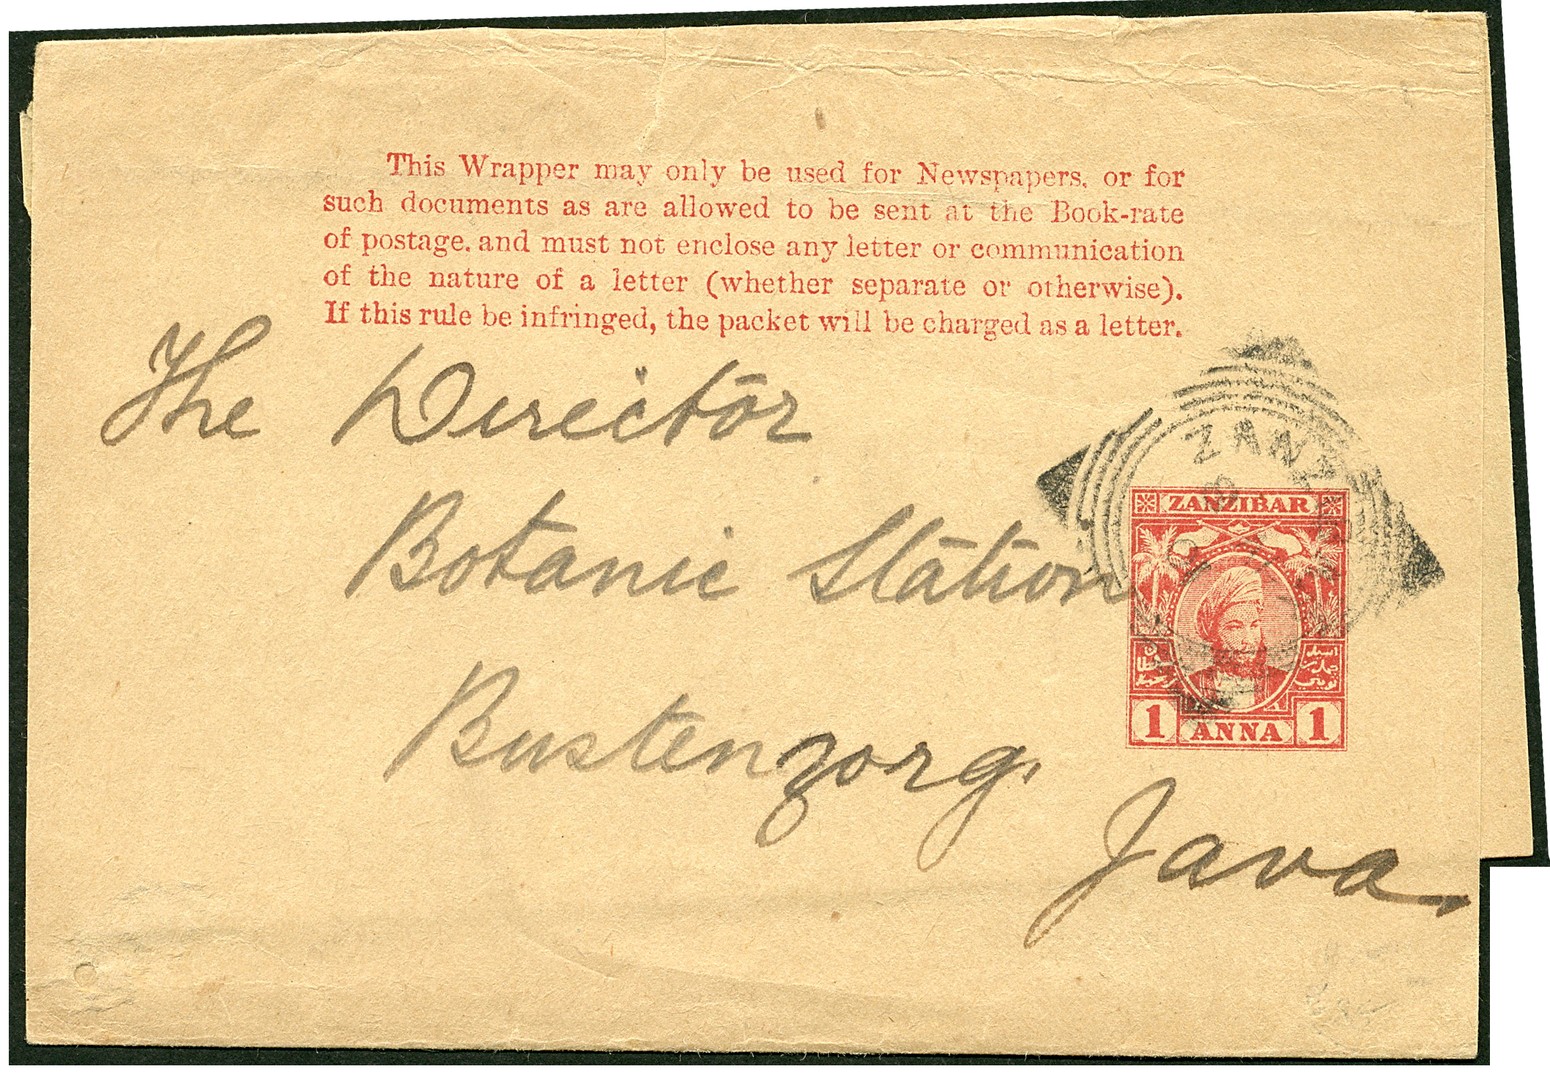 This Wrapper may only be used for Newspapers, or for
such documents as are allowed to be sent at the Book-rate
of postage, and must not enclose any letter or communication
of the nature of a letter (whether separate or otherwise).
If this rule be infringed, the packet will be charged as a letter.
The Director
Botanic Station
Bustenzorg,
Java.
ZANZ
ZANZIBAR
1 ANNA 1